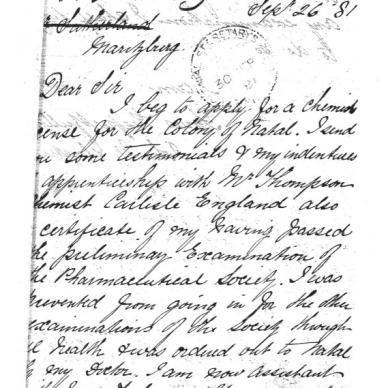 Sept 26 81
Sutherland
Maritzburg
SECRETARY
30
81
Dear Sir
I beg to apply for a chemist
cense for the Colony of Natal. I send
ou some testimonials & my indentures
apprenticeship with Mr Thompson
hemist Carlisle England also
certificate of my having passed
he preliminary Examination of
he Pharmaceutical Society. I was
revented from going in for the other
examinations of the Society through
ll health & was ordered out to Natal
y my Doctor. I am now assistant